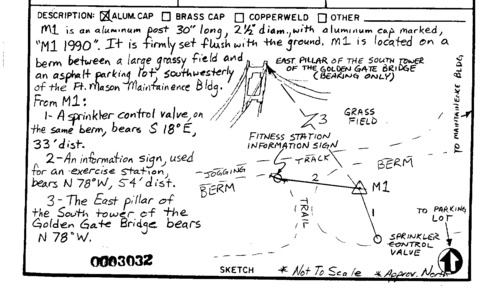 DESCRIPTION: ☒ ALUM. CAP ☐ BRASS CAP ☐ COPPERWELD ☐ OTHER
M1 is an aluminum post 30" long, 2½" diam., with aluminum cap marked,
"M1 1990". It is firmly set flush with the ground. M1 is located on a
berm between a large grassy field and
an asphalt parking lot, southwesterly
of the Ft. Mason Maintainence Bldg.
From M1:
1 - A sprinkler control valve, on
the same berm, bears S 18° E,
33' dist.
2 - An information sign, used
for an exercise station,
bears N 78° W, 54' dist.
3 - The East pillar of
the South tower of the
Golden Gate Bridge bears
N 78° W.
0003032
EAST PILLAR OF THE SOUTH TOWER
OF THE GOLDEN GATE BRIDGE
(BEARING ONLY)
3
GRASS
FIELD
TO MAINTAINENCE BLDG
FITNESS STATION
INFORMATION SIGN
JOGGING TRACK
BERM
BERM
2
M1
TRAIL
1
TO PARKING
LOT
SPRINKLER
CONTROL
VALVE
SKETCH * Not To Scale * Approx. North